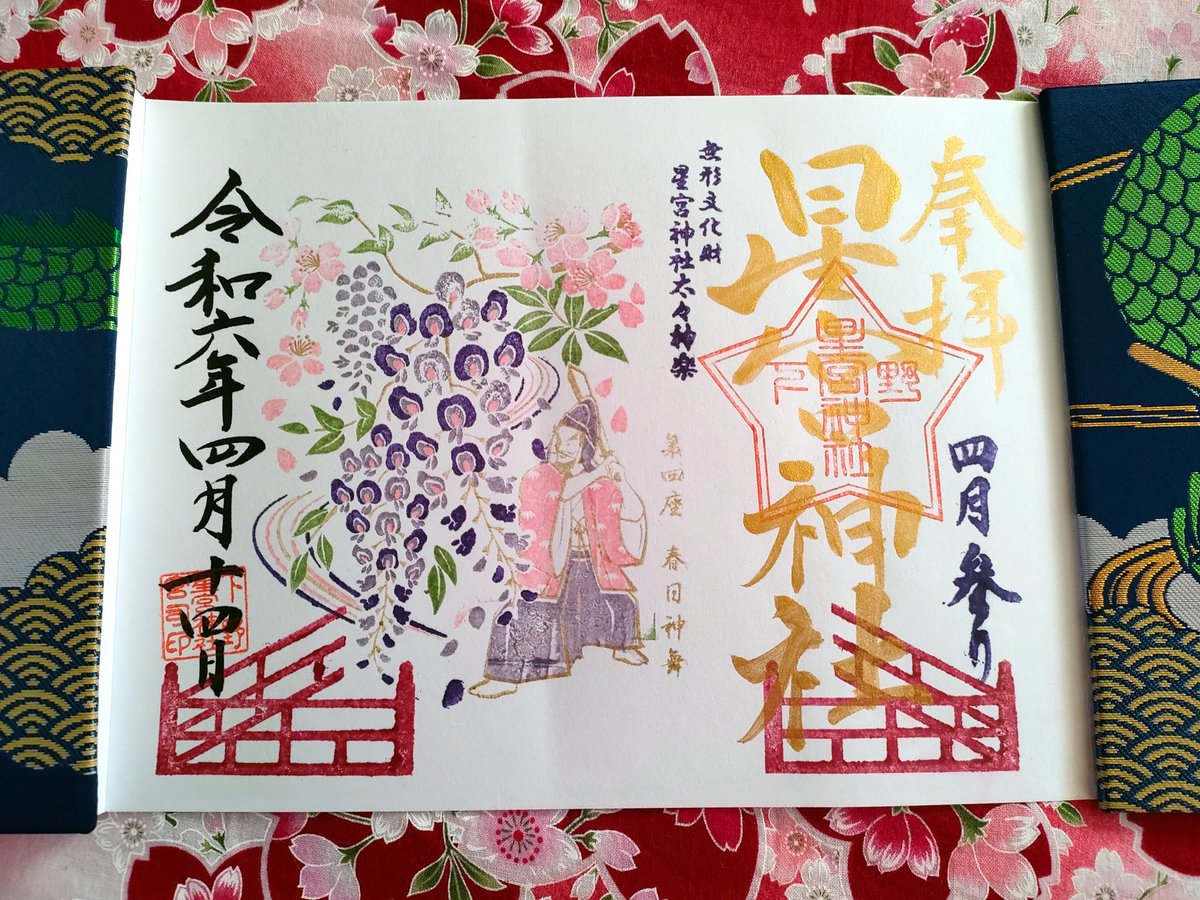 奉拝
四月参り
星宮神社
下野
星宮神社
無形文化財
星宮神社太々神楽
第四座 春日神舞
令和六年四月十四日